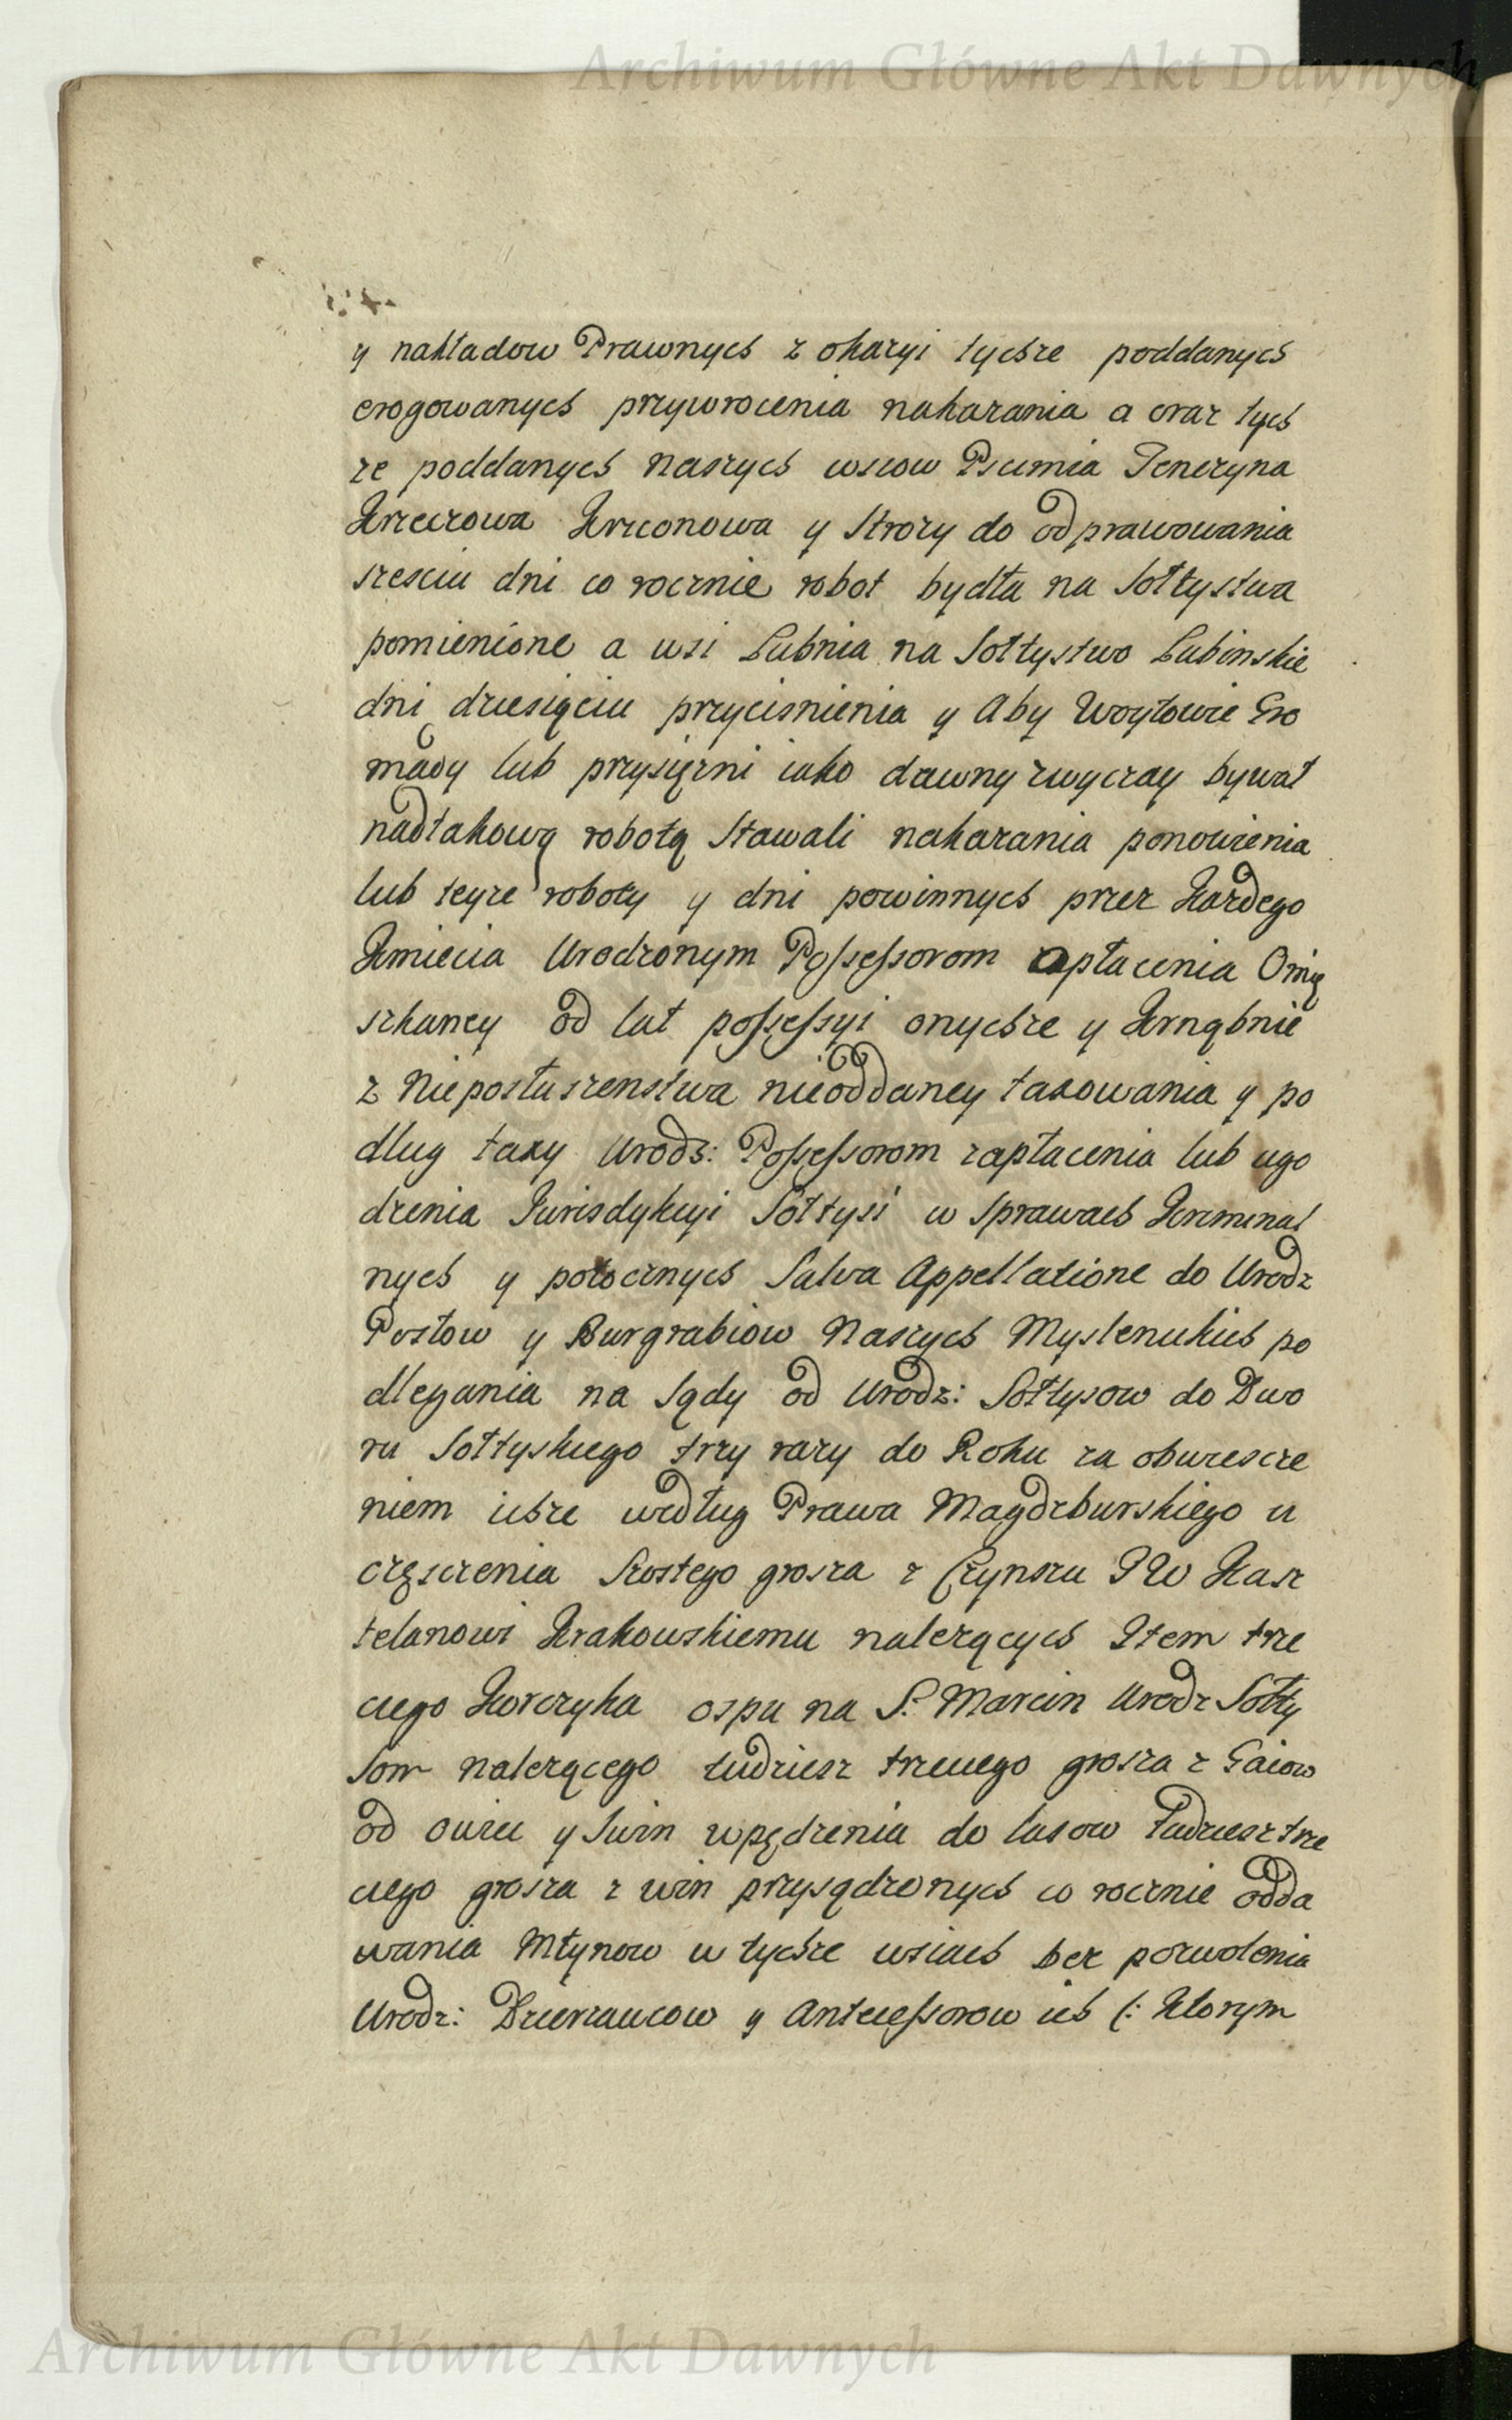 Archiwum Główne Akt Dawnych
y nakładow Prawnych z okazyi tychze poddanych
erogowanych przywrocenia nakazania a oraz tych
ze poddanych naszych wsiow Pcimia Tenczyna
Krzeczowa Krzconowa y Strozy do odprawowania
szesciu dni co rocznie robot bydła na Sołtystwa
pomienione a wsi Lubnia na Sołtystwo Lubinskie
dni dziesięciu przycisnienia y Aby Woytowie Gro
mady lub przysięzni iako dawny zwyczay bywał
nad takową robotą Stawali nakazania ponowienia
lub teyze roboty y dni powinnych przez Kazdego
Kmiecia Urodzonym Possessorom opłacenia Omię
szkaney od lat possessyi onychze y Krnąbnie
z Nieposłuszenstwa nieoddaney taxowania y po
dlug taxy Urodz: Possessorom zapłacenia lub ugo
dzenia Jurisdykcyi Sołtysi w Sprawach Kriminal
nych y potocznych Salva Appellatione do Urodz
Posłow y Burgrabiow Naszych Myslenickich po
dlegania na Sądy od Urodz: Sołtysow do Dwo
ru Sołtyskiego trzy razy do Roku za obwiescze
niem ichze według Prawa Magdeburskiego u
częsczenia Szostego grosza z Czynszu JW Kasz
telanowi Krakowskiemu nalezących Item trze
ciego Korczyka ospu na S. Marcin Urodz Sołty
som nalezącego tudziesz trzeciego grosza z Gaiow
od owiec y Swin wpędzenia do lasow Tudziesz trze
ciego grosza z win przysądzonych co rocznie odda
wania Młynow w tychze wsiach bez pozwolenia
Urodz: Dzierzawcow y Antecessorow ich (: Ktorym
Archiwum Główne Akt Dawnych